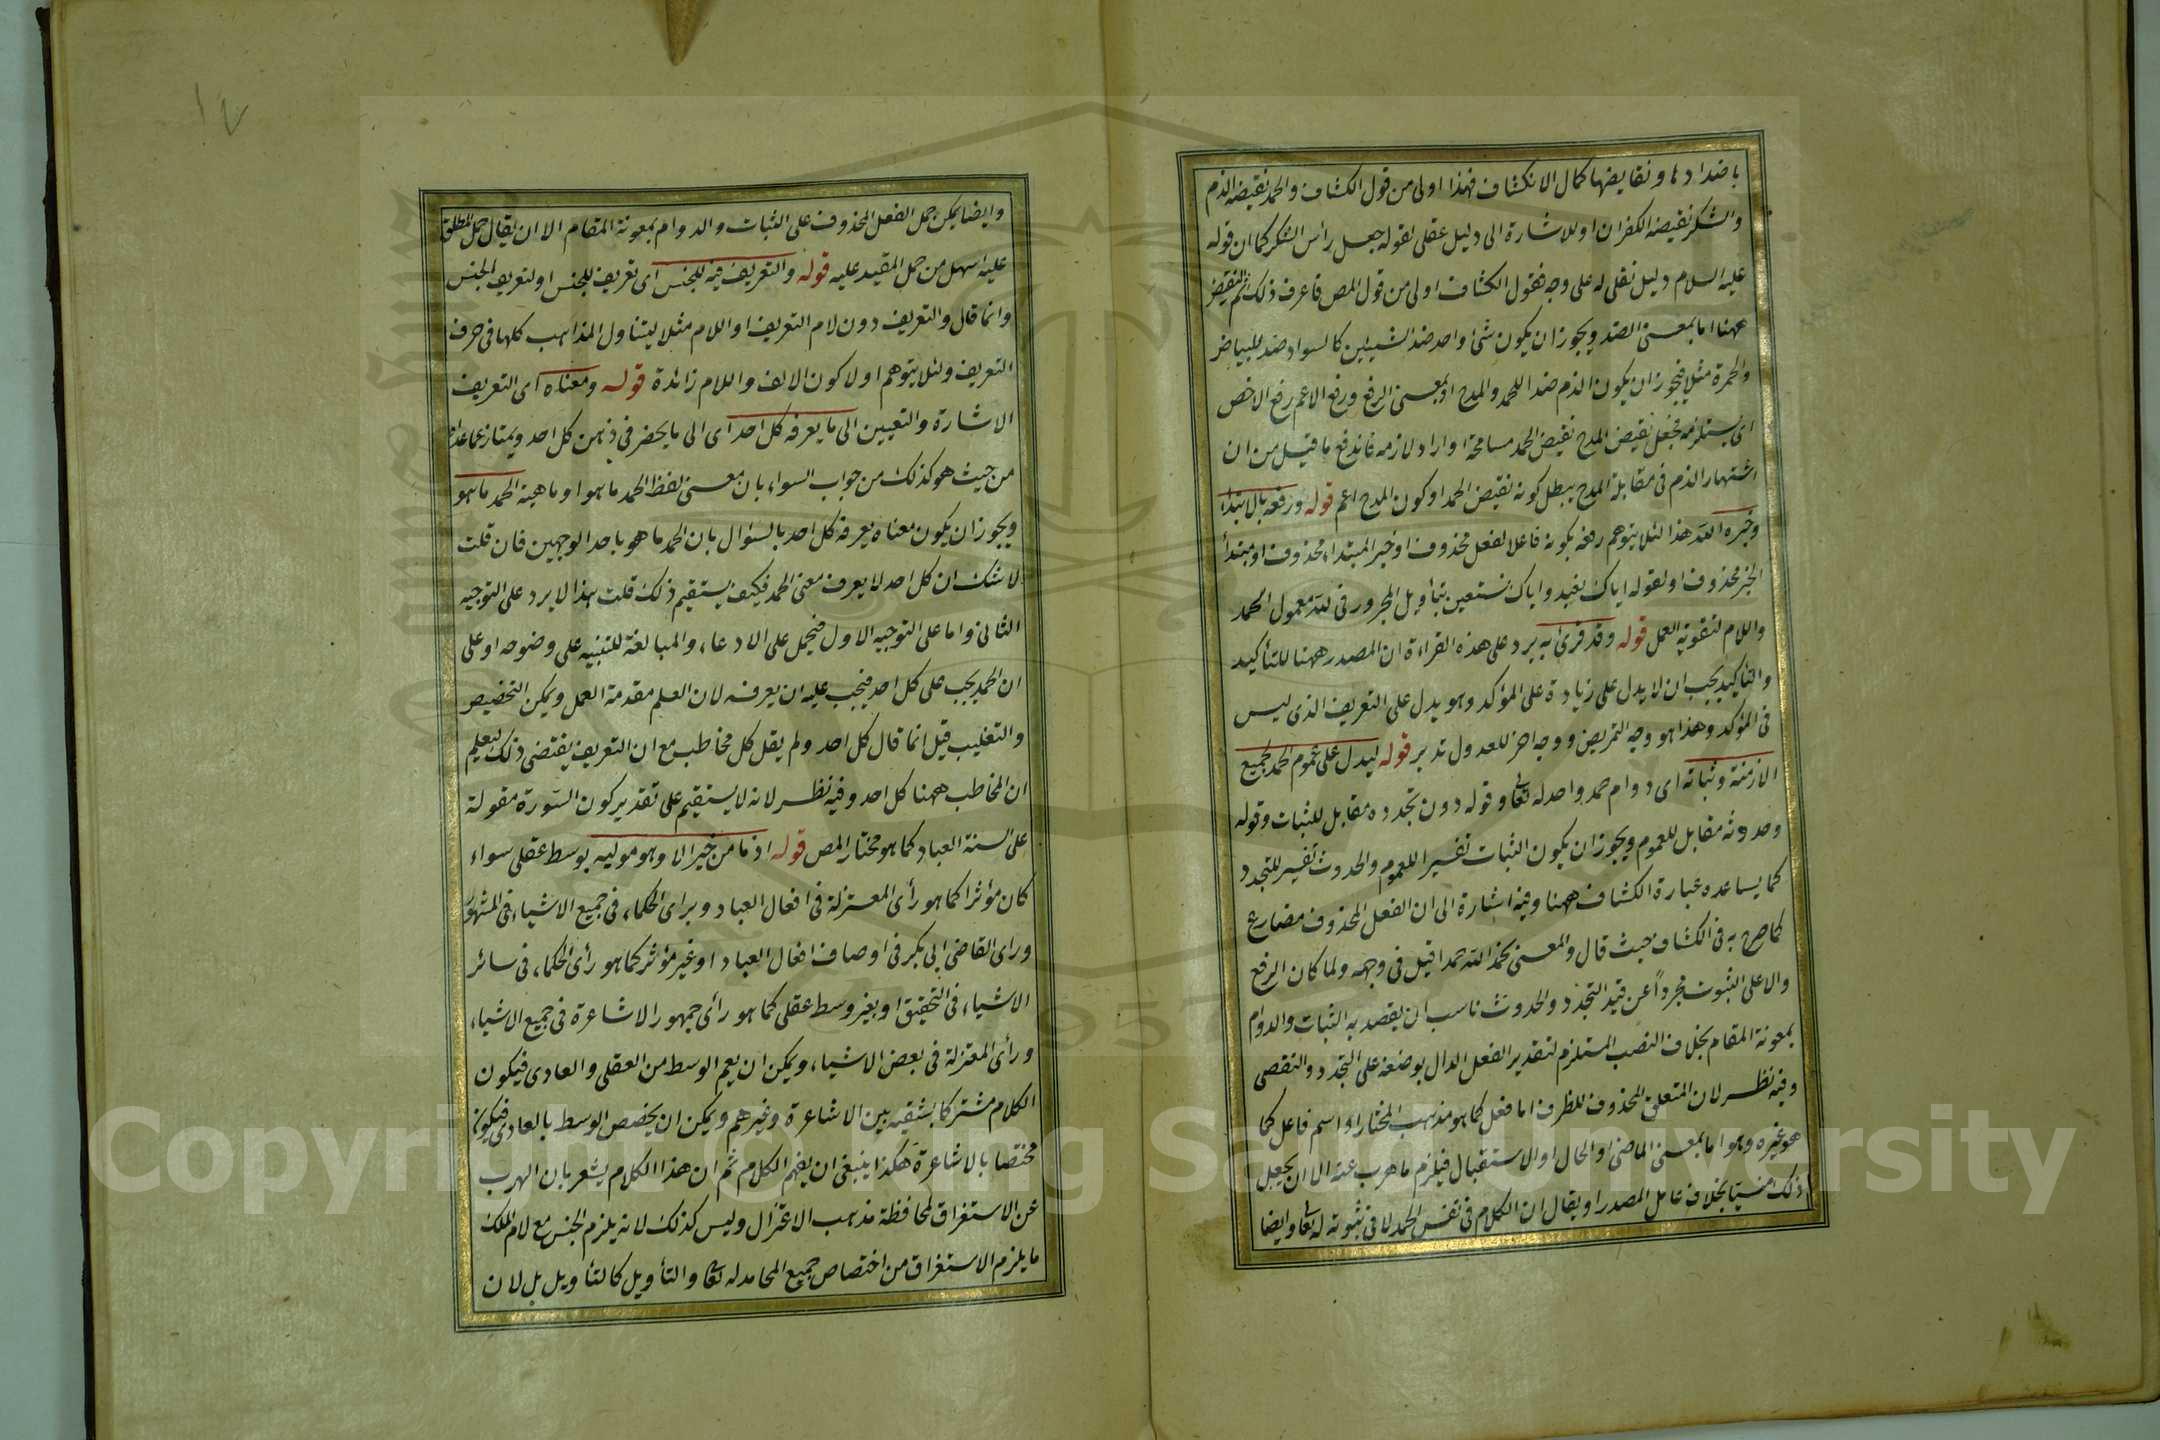 باضدادها ونقايضها كمال الانكشاف فهذا اولى من قول الكشاف والحمد نقيضه الذم
والشكر نقيضه الكفران او للاشارة الى دليل عقلى لقوله جعل رأس الشكر كما ان قوله
عليه السلام دليل نقلى له على وجه فقول الكشاف اولى من قول المص فاعرف ذلك ثم النقيض
ههنا اما بمعنى الضد ويجوز ان يكون شئ واحد ضد الشيئين كالسواد ضد للبياض
والحمرة مثلا فيجوز ان يكون الذم ضد اللحمد والمدح او بمعنى الرفع ورفع الاعم رفع الاخص
اى يستلزمه فجعل نقيض المدح نقيض الحمد مسامحة او اراد لازمه فاندفع ما قيل من ان
اشتهار الذم فى مقابلة المدح يبطل كونه نقيض الحمد او كون المدح اعم قوله ورفعه بالابتداء
وخبره لله هذا لئلا يتوهم رفعه بكونه فاعلا لفعل محذوف او خبر المبتداء محذوف او مبتدأ
الخبر محذوف او لقوله اياك نعبد واياك نستعين بتأويل المجرور فى لله معمول الحمد
واللام لتقوية العمل قوله وقد قرئ به يرد على هذه القراءة ان المصدر ههنا للتأكيد
والتأكيد يجب ان لا يدل على زيادة على المؤكد وهو يدل على التعريف الذى ليس
فى المؤكد وهذا هو وجه التمريض ووجه اخر للعدول تدبر قوله ليدل على عموم الحمد لجميع
الازمنة وثباته اى دوام حمد واحد له تعالى وقوله دون تجدده مقابل للثبات وقوله
وحدوثه مقابل للعموم ويجوز ان يكون الثبات تفسيرا للعموم والحدوث تفسير للتجدد
كما يساعده عبارة الكشاف ههنا وفيه اشارة الى ان الفعل المحذوف مضارع
كما صرح به فى الكشاف حيث قال والمعنى نحمد الله حمدا قيل فى وجهه ولما كان الرفع
والا على الثبوت مجرداً عن قيد التجدد والحدوث ناسب ان يقصد به الثبات والدوام
بمعونة المقام بخلاف النصب المستلزم لتقدير الفعل الدال بوضعه على التجدد والتقصى
وفيه نظر لان المتعلق المحذوف للظرف اما فعل كما هو مذهب المختار او اسم فاعل كما
هو غيره وهو اما بمعنى الماضى او الحال او الاستقبال فيلزم ما هرب عنه الا ان يجعل
ذلك منسيّا بخلاف عامل المصدر او يقال ان الكلام فى نفس الحمد لا فى ثبوته له تعالى وايضا
١٧
وايضا يمكن حمل الفعل المحذوف على الثبات والدوام بمعونة المقام الا ان يقال حمل المطلق
عليه اسهل من حمل المقيد عليه قوله والتعريف فيه للجنس اى تعريف للجنس او لتعريف الجنس
وانما قال والتعريف دون لام التعريف او اللام مثلا ليتناول المذاهب كلها فى حرف
التعريف ولئلا يتوهم اولا كون الالف واللام زائدة قوله ومعناه اى التعريف
الاشارة والتعيين الى ما يعرفه كل احد اى الى ما يحضر فى ذهن كل احد ويمتاز عما عداه
من حيث هو كذلك من جواب السواء بان معنى لفظ الحمد ما هو او ماهية الحمد ما هو
ويجوز ان يكون معناه يعرفه كل احد بالسؤال بان الحمد ما هو باحد الوجهين فان قلت
لا شك ان كل احد لا يعرف معنى الحمد فكيف يستقيم ذلك قلت هذا لا يرد على التوجيه
الثانى واما على التوجيه الاول فيحمل على الادعاء والمبالغة للتنبيه على وضوحه او على
ان الحمد يجب على كل احد فيجب عليه ان يعرفه لان العلم مقدمة العمل ويمكن التخصيص
والتغليب قيل انما قال كل احد ولم يقل كل مخاطب مع ان التعريف يقتضى ذلك ليعلم
ان المخاطب ههنا كل احد وفيه نظر لانه لا يستقيم على تقدير كون السّورة مقولة
على السنة العباد كما هو مختار المص قوله اذ ما من خير الا وهو موليه بوسط عقلى سواء
كان مؤثرا كما هو رأى المعتزلة فى افعال العباد وبرأى الحكماء فى جميع الاشياء فى المشهور
ورأى القاضى ابى بكر فى اوصاف افعال العباد او غير مؤثر كما هو رأى الحكماء فى سائر
الاشياء فى التحقيق او بغير وسط عقلى كما هو رأى جمهور الاشاعرة فى جميع الاشياء
ورأى المعتزلة فى بعض الاشياء ويمكن ان يعم الوسط من العقلى والعادى فيكون
الكلام مشتركا بشقيه بين الاشاعرة وغيرهم ويمكن ان يخصص الوسط بالعادى فيكون
مختصا بالاشاعرة هكذا ينبغى ان يفهم الكلام ثم ان هذا الكلام يشعر بان الهرب
عن الاستغراق لمحافظة مذهب الاعتزال وليس كذلك لانه يلزم الجنس مع لام الملك
ما يلزم الاستغراق من اختصاص جميع المحامد له تعالى والتأويل كالتأويل بل لان
Copyright © King Saud University
1957